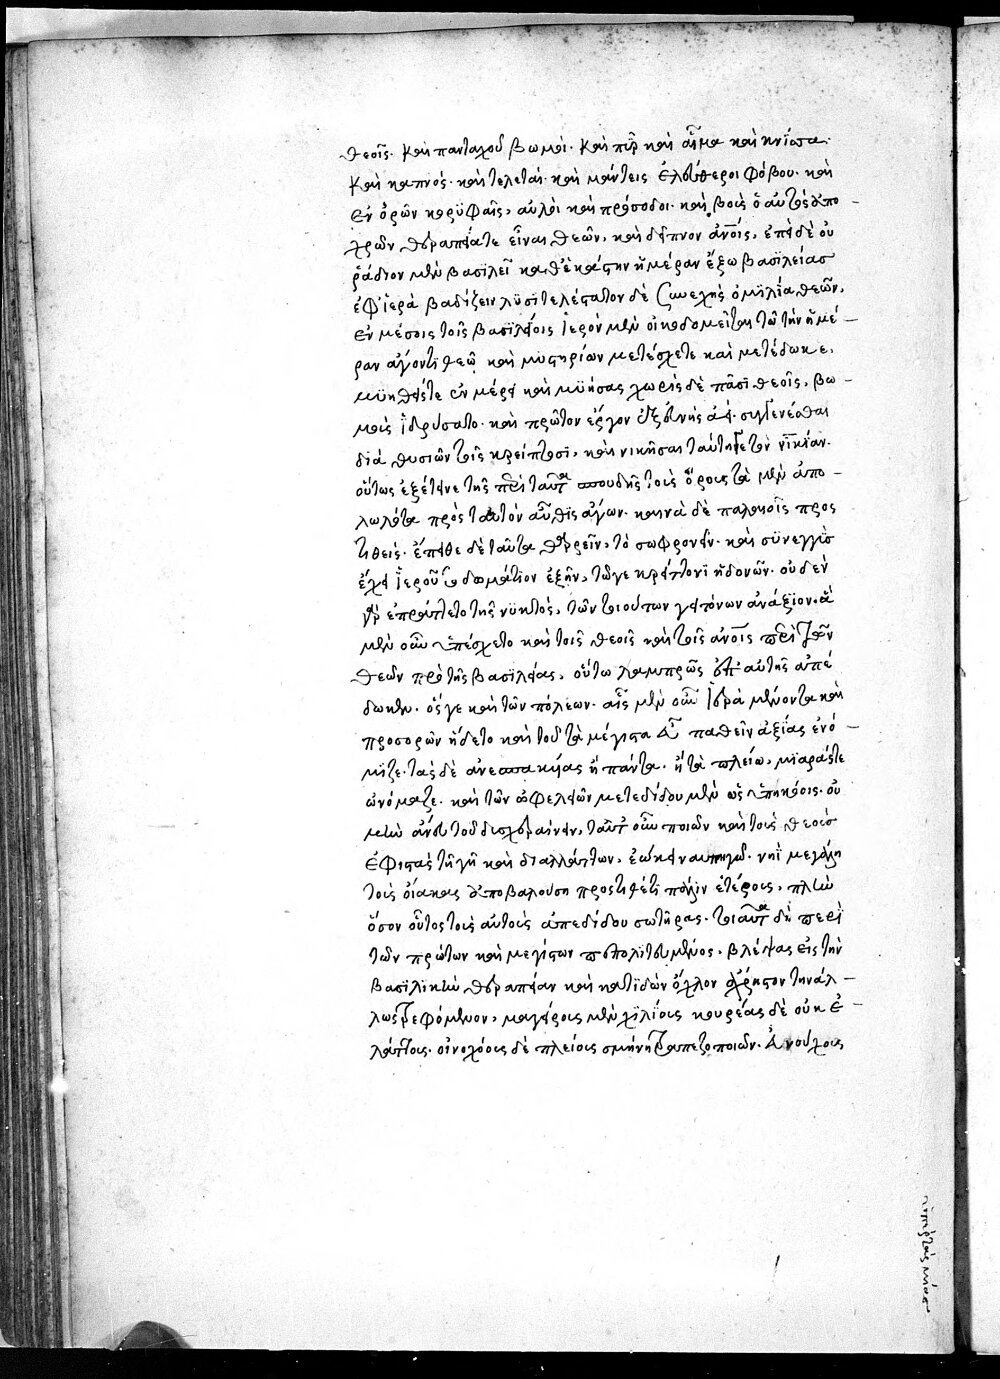 θεοῖς· καὶ πανταχοῦ βωμοὶ· καὶ πῦρ καὶ αἷμα καὶ κνίσσα·
καὶ καπνός· καὶ τελεταὶ· καὶ μάντεις ἐλεύθεροι φόβου· καὶ
ἐν ὀρῶν κορϋφαῖς, αὐλοὶ καὶ πρόσοδοι· καὶ βοῦς ὁ αὐτὸς ἀπο
χρῶν θεραπεία τε εἶναι θεῶν, καὶ δεῖπνον ἀνοις, ἐπεὶ δὲ οὐ
ῥάδιον μὲν βασϊλεῖ καθεκάστην ἡμέραν ἔξω βασϊλείας
ἐφ' ἱερὰ βαδίζειν λϋσϊτελέστατον δὲ συνεχὴς ὁμϊλία θεῶν,
ἐν μέσοις τοῖς βασϊλείοις ἱερὸν μὲν οἰκοδομεῖται τῶ τὴν ἡμέ
ραν ἄγοντϊ θεῶ καὶ μυστηρίων μετέσχετε καὶ μετέδωκε,
μϋηθείς τε ἐν μέρει καὶ μϋήσας χωρὶς δὲ πᾶσϊ θεοῖς, βω
μοὺς ἱδρύσατο· καὶ πρῶτον ἔργον ἐξ εὐνῆς ἀεὶ συγγενέσθαι
διὰ θυσιῶν τοῖς κρείττοσϊ, καὶ νικῆσαι ταύτη γε τὸν νϊκίαν·
οὕτως ἐξέτεινε τῆς περὶ ταῦτα σπουδῆς τοὺς ὅρους τὰ μὲν ἀπο
λωλότα πρὸς ταυτὸν αὖθϊς ἄγων· καινὰ δὲ παλαιοῖς προς
τϊθείς· ἔπειθε δὲ ταῦτα θαρρεῖν, τὸ σωφρονεῖν· καὶ σϋνεγγϋς
ἔχειν ἱεροῦ τὸ δωμάτϊον ἐξῆν, τῶ γε κρείττονϊ ἡδονῶν· οὐδὲν
γὰρ ἐπράττετο τῆς νϋκτὸς, τῶν τοιούτων γειτόνων ἀνάξϊον. ἃ
μὲν οὖν ὑπέσχετο καὶ τοῖς θεοῖς καὶ τοῖς ἀνοις περὶ τῶν
θεῶν πρὸ τῆς βασϊλείας, οὕτω λαμπρῶς ἐπ' αὐτῆς ἀπέ
δωκεν· ὅς γε καὶ τῶν πόλεων· αἷς μὲν οὖν ἱερὰ μένοντα καὶ
προσορῶν ἥδετο καὶ τοῦ τὰ μέγιστα εὖ παθεῖν ἀξίας ἐνό
μϊζε· τὰς δὲ ἀνεσπακυίας ἢ πάντα· ἢ τὰ πλείω, μϊαράς τε
ὠνόμαζε· καὶ τῶν ὠφελειῶν μετεδίδου μὲν ὡς ὑπηκόοις· οὐ
μὴν ἄνευ τοῦ δυσχεραίνειν, ταῦτ' οὖν ποιῶν καὶ τοὺς θεοὺς
ἐφιστὰς τῆ γῆ καὶ διαλλάττων, ἐώκει ναυπηγῶ· νηῒ μεγάλη
τοὺς οἴακας ἀποβαλούση προστϊθέντϊ πάλϊν ἑτέρους, πλὴν
ὅσον οὗτος τοὺς αὐτοὺς ἀπεδίδου σωτῆρας· τοιαῦτα δὴ περὶ
τῶν πρώτων καὶ μεγίστων πεπολϊτευμένος, βλέψας εἰς τὴν
βασϊλϊκὴν θεραπείαν καὶ κατϊδὼν ὄχλον ἄχρηστον τηνάλ
λως τρεφόμενον, μαγείρους μὲν χϊλίους κουρέας δὲ οὐκ ἐ
λάττους· οἰνοχόους δὲ πλείους σμήνη τραπεζοποιῶν· εὐνούχους